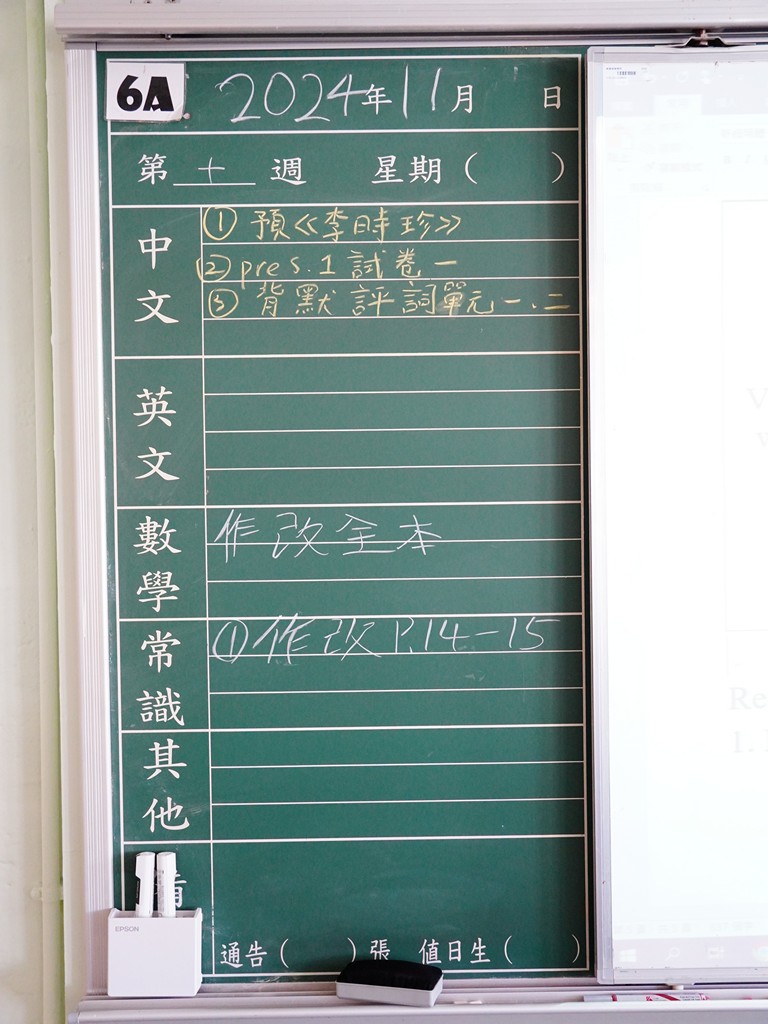 6A 2024年11月 日
第 十 週 星期( )
中文
① 預《李時珍》
② pre s.1 試卷一
③ 背默評詞單元一、二
英文
數學
作改全本
常識
① 作改 P.14-15
其他
EPSON
通告( )張 值日生( )
Re
1.